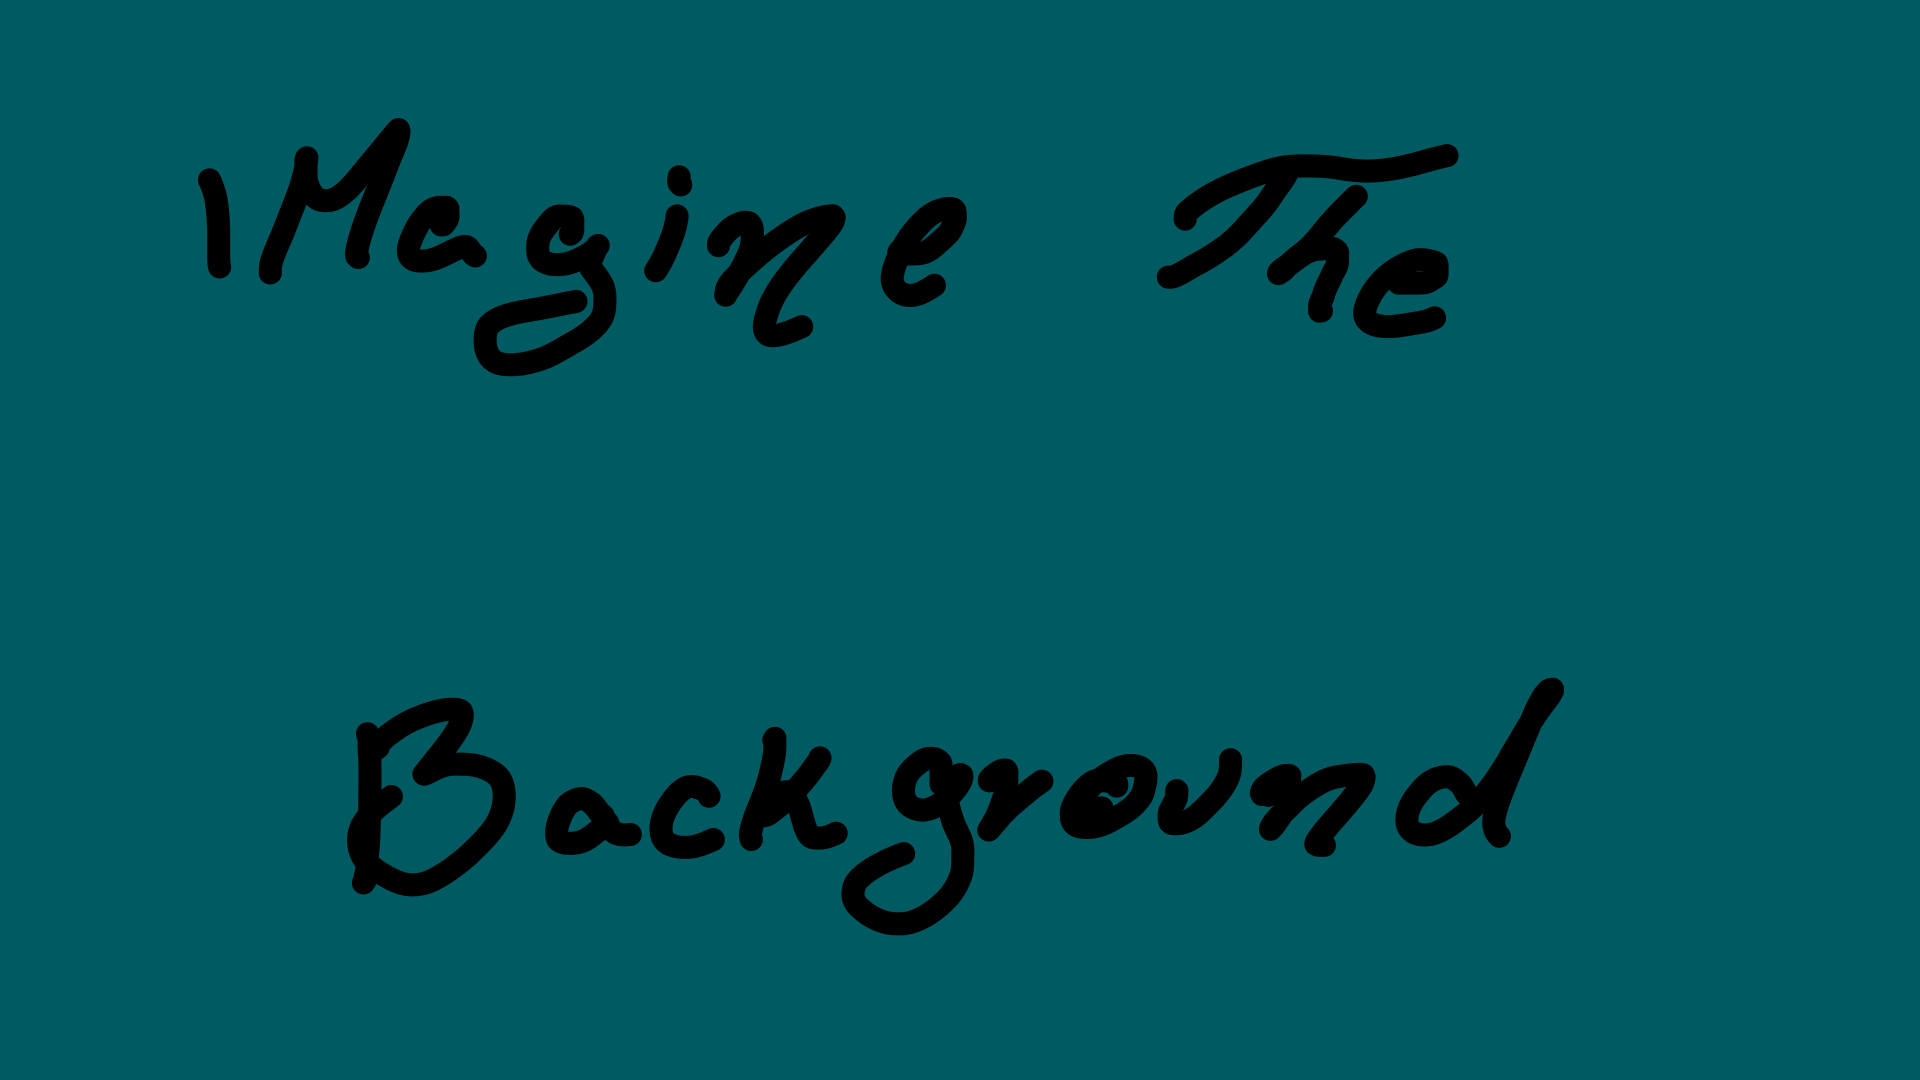 iMagine The
Background